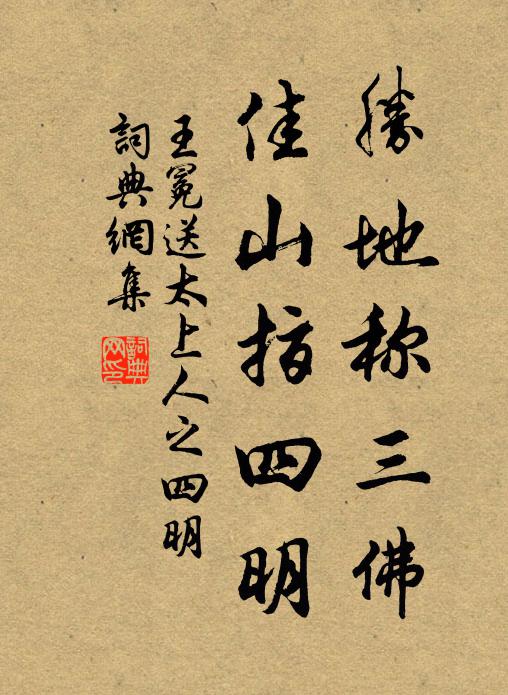 勝地称三佛
佳山指四明
王冕送太上人之四明
詞典網集
詞典
网印